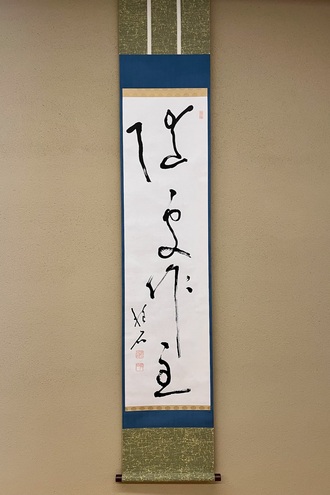 随處作主